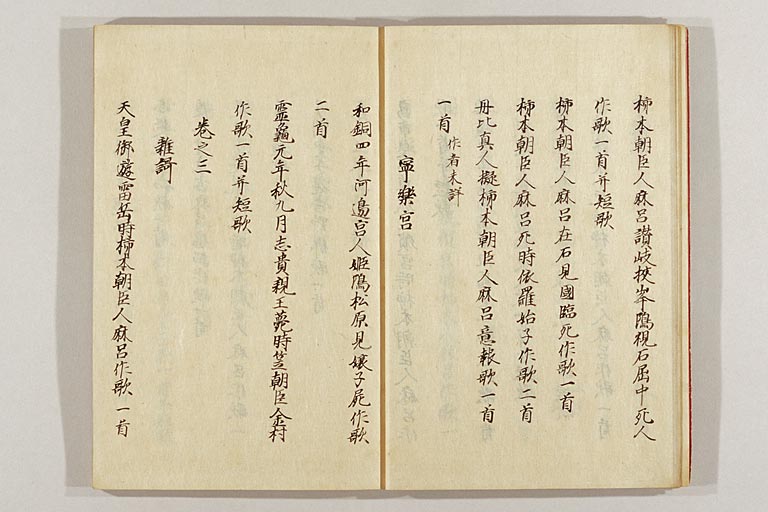 柿本朝臣人麻呂讃岐狭岑嶋視石屈中死人
作歌一首并短歌
柿本朝臣人麻呂在石見國臨死作歌一首
柿本朝臣人麻呂死時依羅娘子作歌二首
丹比真人擬柿本朝臣人麻呂意報歌一首
一首 作者未詳
寧樂宮
和銅四年河邊宮人姫嶋松原見嬢子屍作歌
二首
靈龜元年秋九月志貴親王薨時笠朝臣金村
作歌一首并短歌
巻之三
雜謌
天皇御遊雷岳時柿本朝臣人麻呂作歌一首